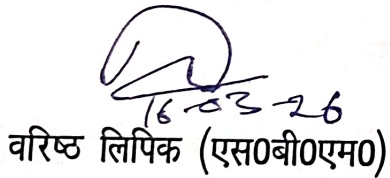 16-03-26
वरिष्ठ लिपिक (एस0बी0एम0)